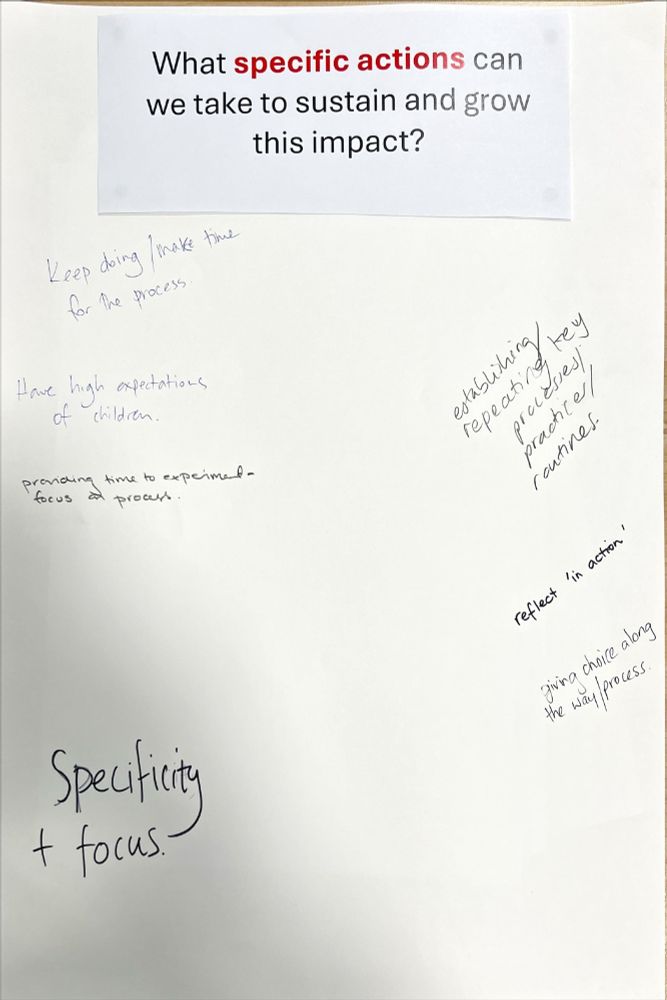 What specific actions can
we take to sustain and grow
this impact?
Keep doing/make time
for the process.
Have high expectations
of children.
providing time to experiment-
focus on process.
Specificity
+ focus.
establishing/
repeating key
processes/
practices/
routines.
reflect 'in action'
giving choice along
the way/process.